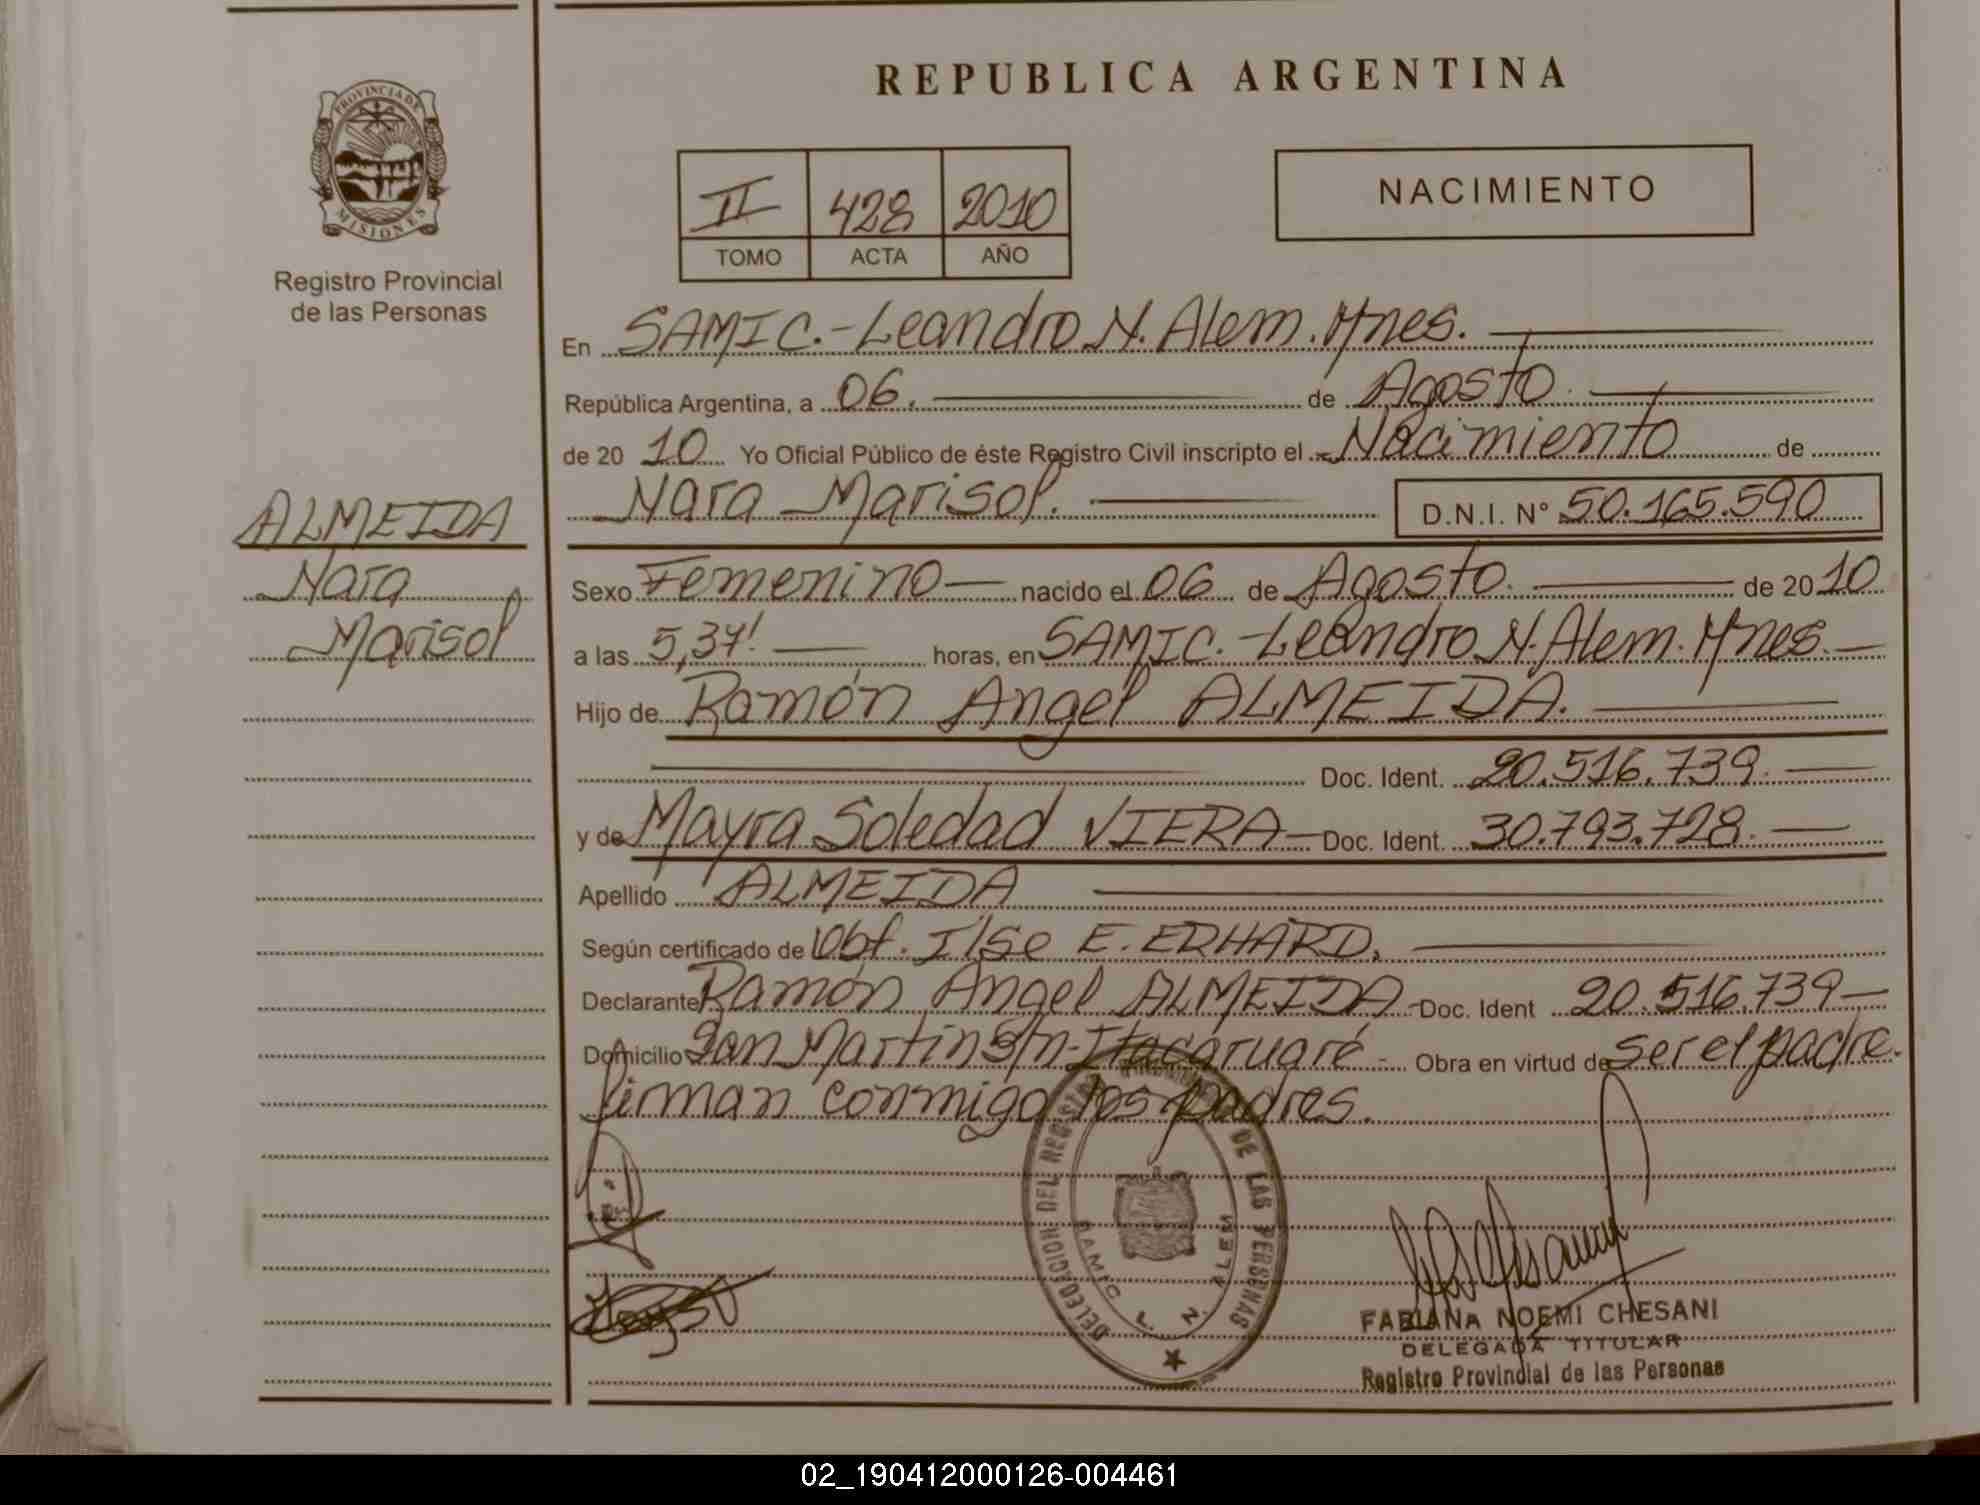 REPUBLICA ARGENTINA
PROVINCIA DE
MISIONES
Registro Provincial
de las Personas
II 428 2010
TOMO ACTA AÑO
NACIMIENTO
En SAMIC.-Leandro N. Alem. Mnes.
República Argentina, a 06. de Agosto.
de 20 10 Yo Oficial Público de éste Registro Civil inscripto el Nacimiento de
Nara Marisol. D.N.I. N° 50.165.590
ALMEIDA
Nara
Marisol
Sexo Femenino nacido el 06 de Agosto. de 20 10
a las 5,37! horas, en SAMIC.-Leandro N. Alem. Mnes.
Hijo de Ramón Angel ALMEIDA.
Doc. Ident. 20.516.739.
y de Mayra Soledad VIERA Doc. Ident. 30.793.728.
Apellido ALMEIDA
Según certificado de Obt. Ilse E. ERHARD.
Declarante Ramón Angel ALMEIDA- Doc. Ident 20.516.739
Domicilio San Martin s/n-Itacaruaré- Obra en virtud de ser el padre.
firman conmigo los padres.
DELEGACION DEL REGISTRO PROVINCIAL DE LAS PERSONAS
SAMIC L. N. ALEM
FABIANA NOEMI CHESANI
DELEGADA TITULAR
Registro Provincial de las Personas
02_190412000126-004461